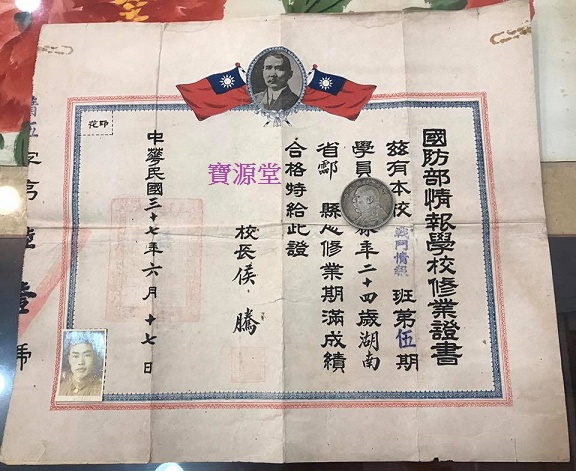 國防部情報學校修業證書
茲有本校戰鬥情報班第伍期
學員 年二十四歲湖南
省酃縣人修業期滿成績
合格特給此證
校長侯騰
中華民國三十七年六月十七日
印花
情伍字第 壹號
寶源堂